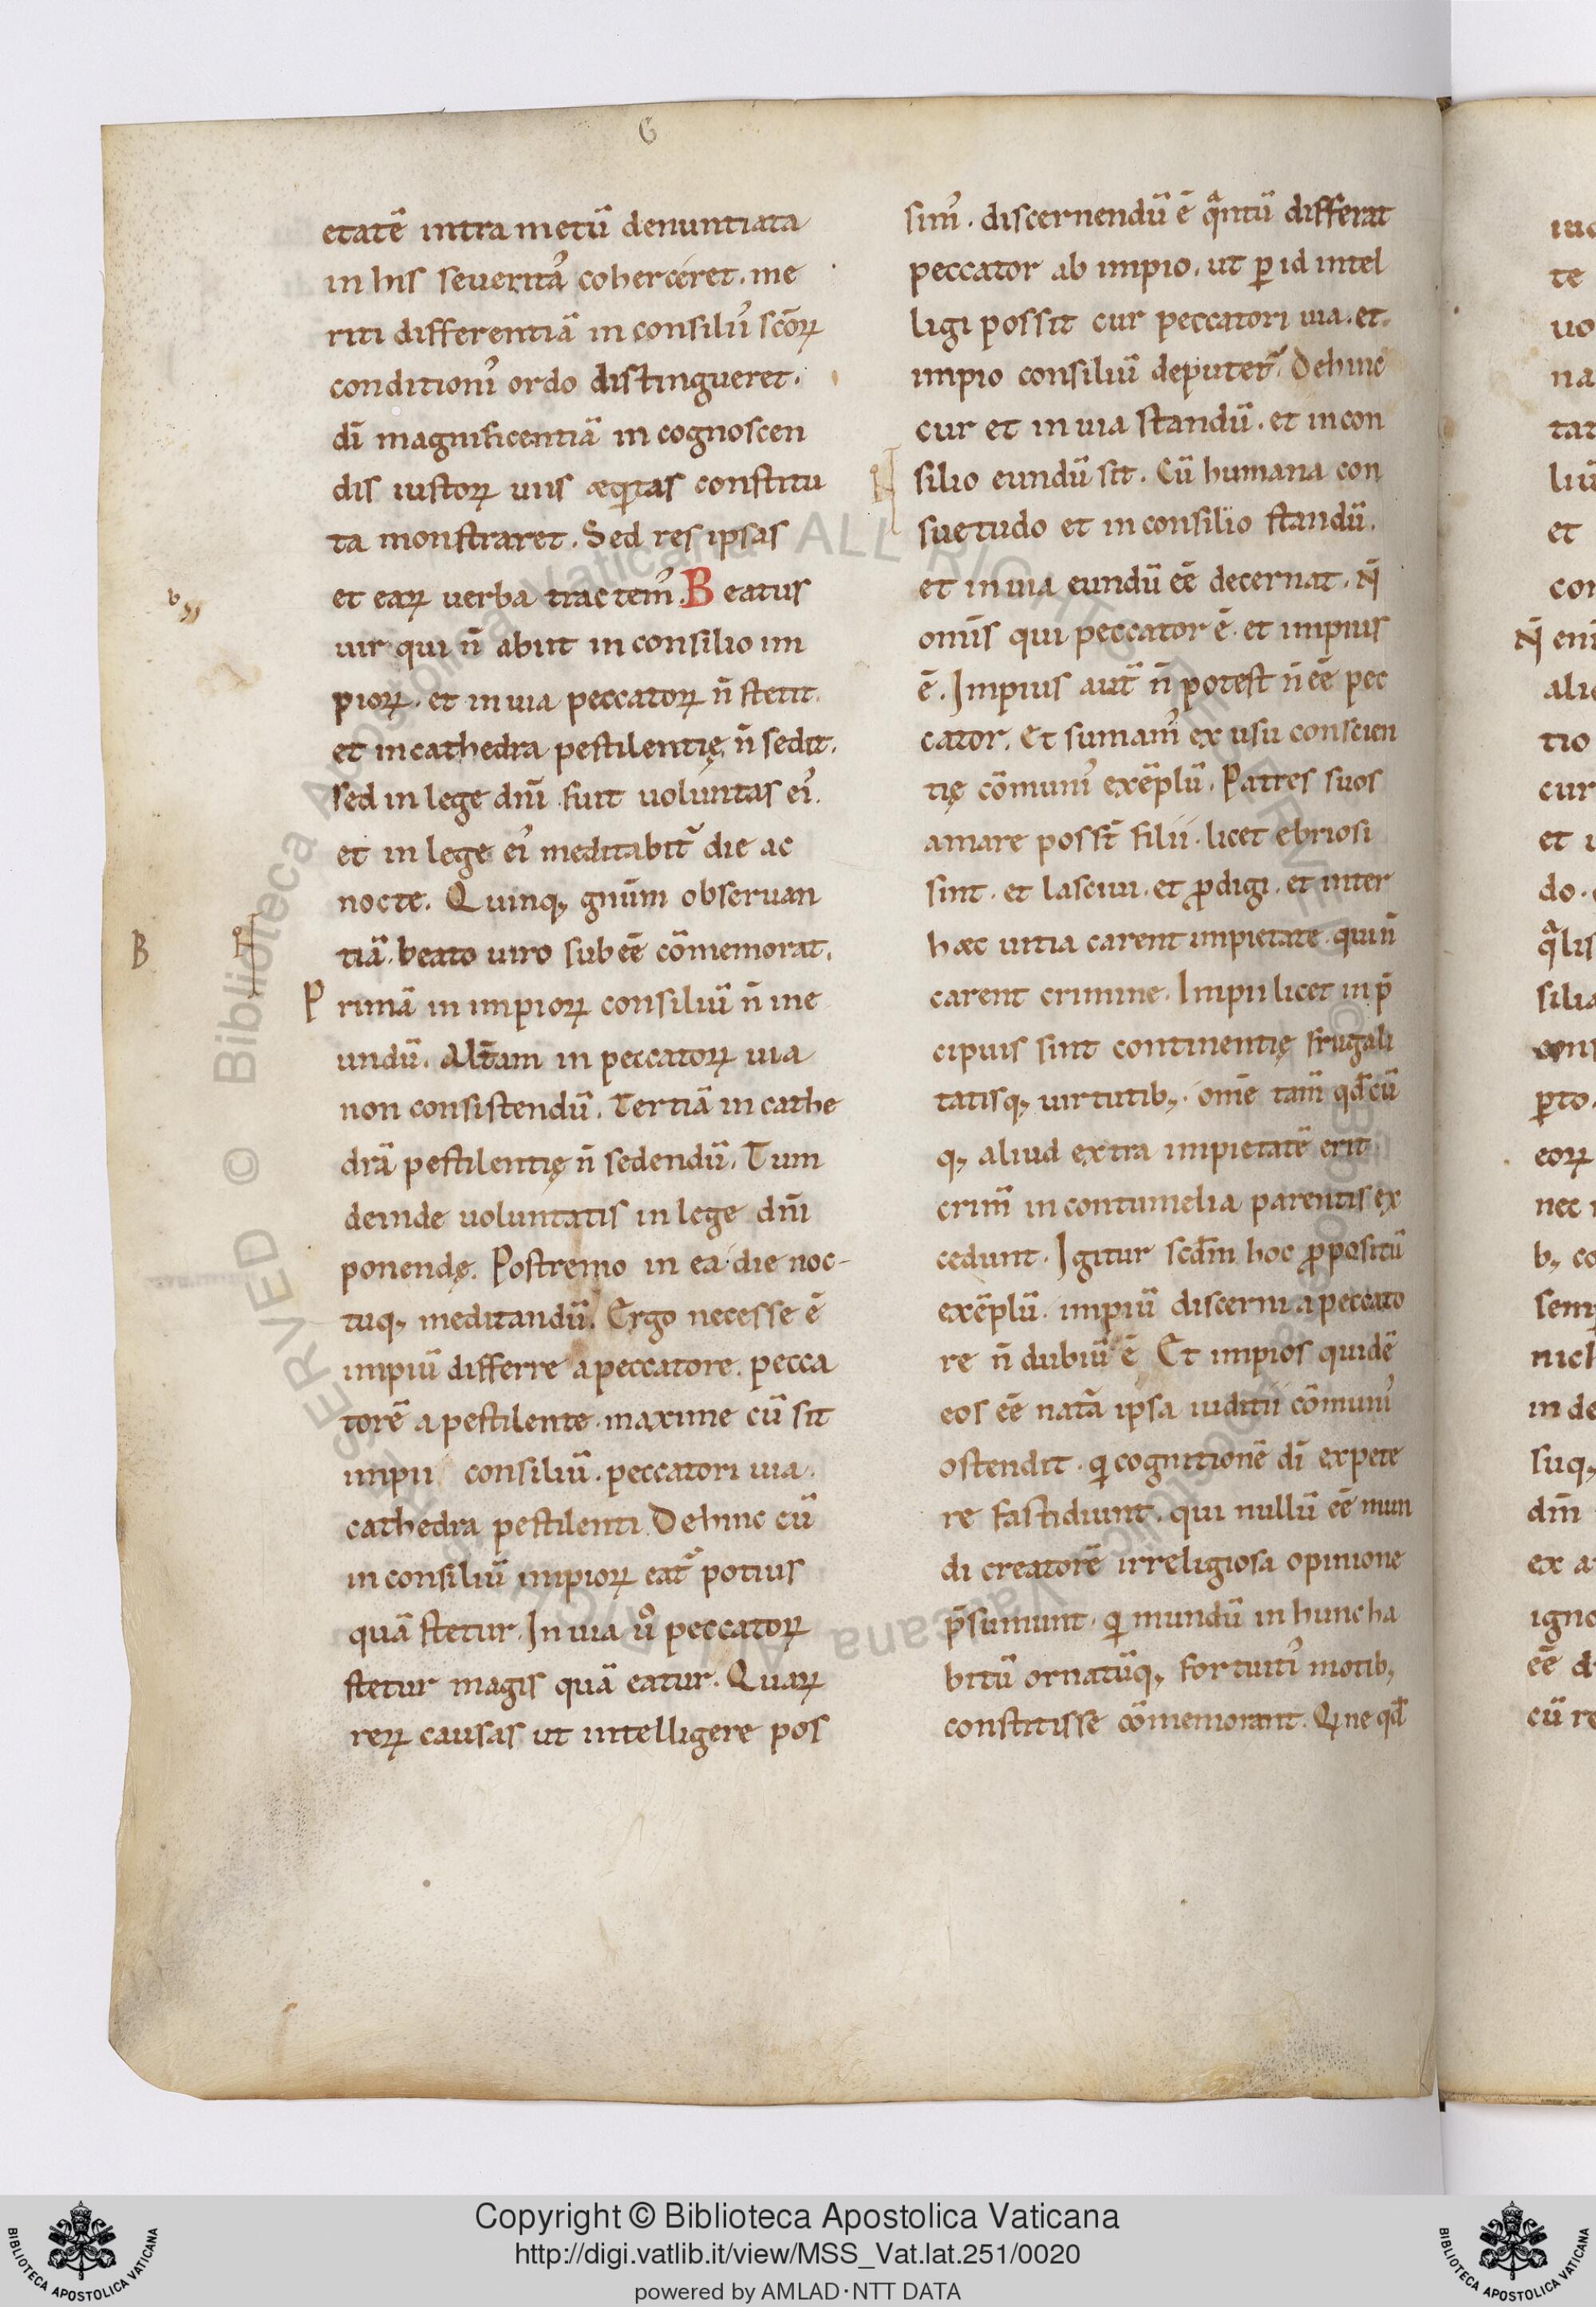 G
etatē intra metū denuntiata
in his seueritaꝰ coherceret. me
riti differentiā in consiliū scōꝝ
conditionꝰ ordo distingueret.
dī magnificentiā in cognoscen
dis iustoꝝ uiis æqͥtas constitu
ta monstraret. Sed res ipsas
et eaꝝ uerba tractemꝰ. Beatus
uir qui n̄ abiit in consilio im
pioꝝ. et in uia peccatoꝝ n̄ stetit.
et in cathedra pestilentię n̄ sedit.
sed in lege dn̄i fuit uoluntas eiꝰ.
et in lege eiꝰ meditabit᷑ die ac
nocte. Quinq; gnūm obseruan
B
tiā. beato uiro sub eē cōmemorat.
Primā in impioꝝ consiliū n̄ ine
undū. Alt̄am in peccatoꝝ uia
non consistendū. Tertiā in cathe
drā pestilentię n̄ sedendū. Tum
deinde uoluntatis in lege dn̄i
ponendę. Postremo in ea die noc-
tuq; meditandū. Ergo necesse ē
impiū differre a peccatore. pecca
torē a pestilente. maxime cū sit
impii consiliū. peccatori uia.
cathedra pestilenti. Dehinc cū
in consiliū impioꝝ eat᷑ potius
quā stetur. In uia uͦ peccatoꝝ
stetur magis quā eatur. Quaꝝ
reꝝ causas ut intelligere pos
simꝰ. discernendū ē qͣntū differat
peccator ab impio. ut ꝑ id intel
ligi possit cur peccatori uia. et
impio consiliū deputet᷑. Dehinc
cur et in uia standū. et in con
silio eundū sit. Cū humana con
suetudo et in consilio standū.
et in uia eundū eē decernat. N̄
omīs qui peccator ē. et impius
ē. Impius aut̄ n̄ potest n̄ eē pec
cator. Et sumamꝰ ex usu conscien
tię cōmunꝰ exēplū. Patres suos
amare posst̄ filii. licet ebriosi
sint. et lasciui. et ꝓdigi. et inter
hæc uitia carent impietate. qui n̄
carent crimine. Impii licet in p̄
cipuis sint continentię frugali
tatisq; uirtutib;. om̄e tam̄ qd̄cū
q; aliud extra impietatē erit
crim̄ in contumelia parentis ex
cedunt. Igitur scd̄m hoc ꝓpositū
exēplū. impiū discerni a peccato
re n̄ dubiū ē. Et impios quidē
eos eē nat̄a ipsa iuditii cōmunꝰ
ostendit. qͥ cognitionē dī expete
re fastidiunt. qui nullū eē mun
di creatorē irreligiosa opinione
p̄sumunt. qͥ mundū in hunc ha
bitū ornatūq; fortuitꝰ motib;
constitisse cōmemorant. Q̄ ne qd̄
Copyright © Biblioteca Apostolica Vaticana
http://digi.vatlib.it/view/MSS_Vat.lat.251/0020
powered by AMLAD·NTT DATA
BIBLIOTECA APOSTOLICA VATICANA
BIBLIOTECA APOSTOLICA VATICANA